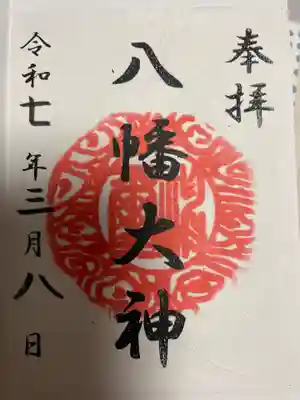 奉拝
八幡大神
令和七年三月八日